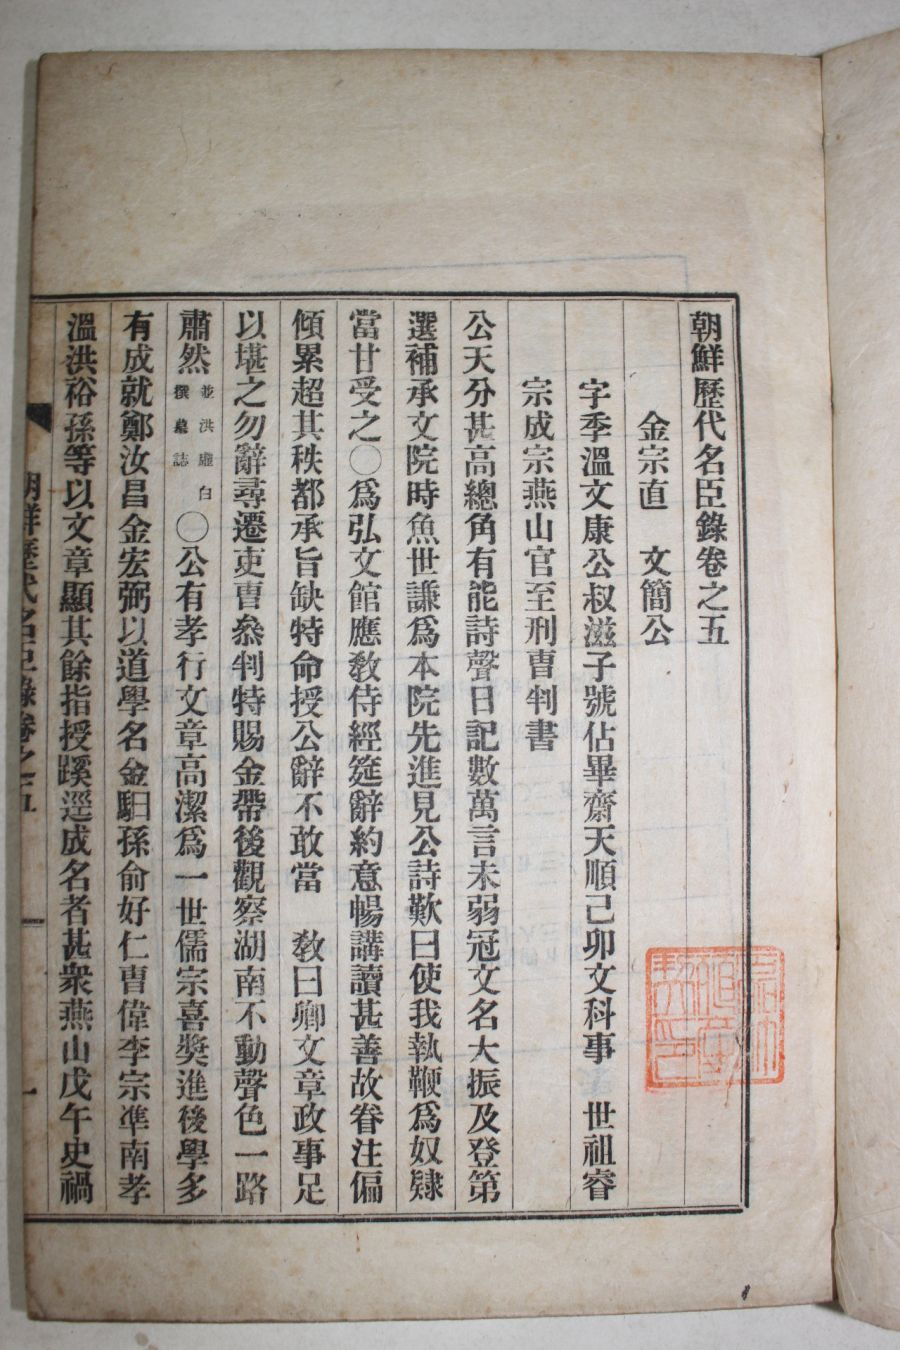 朝鮮歷代名臣錄卷之五
金宗直　文簡公
字季溫文康公叔滋子號佔畢齋天順己卯文科事　世祖睿
宗成宗燕山官至刑曹判書
公天分甚高總角有能詩聲日記數萬言未弱冠文名大振及登第
選補承文院時魚世謙爲本院先進見公詩歎曰使我執鞭爲奴隷
當甘受之〇爲弘文館應敎侍經筵辭約意暢講讀甚善故眷注偏
傾累超其秩都承旨缺特命授公辭不敢當　敎曰卿文章政事足
以堪之勿辭尋遷吏曹叅判特賜金帶後觀察湖南不動聲色一路
肅然並洪虛白撰墓誌〇公有孝行文章高潔爲一世儒宗喜奬進後學多
有成就鄭汝昌金宏弼以道學名金馹孫俞好仁曹偉李宗準南孝
溫洪裕孫等以文章顯其餘指授蹊逕成名者甚衆燕山戊午史禍
朝鮮歷代名臣錄卷之五　一